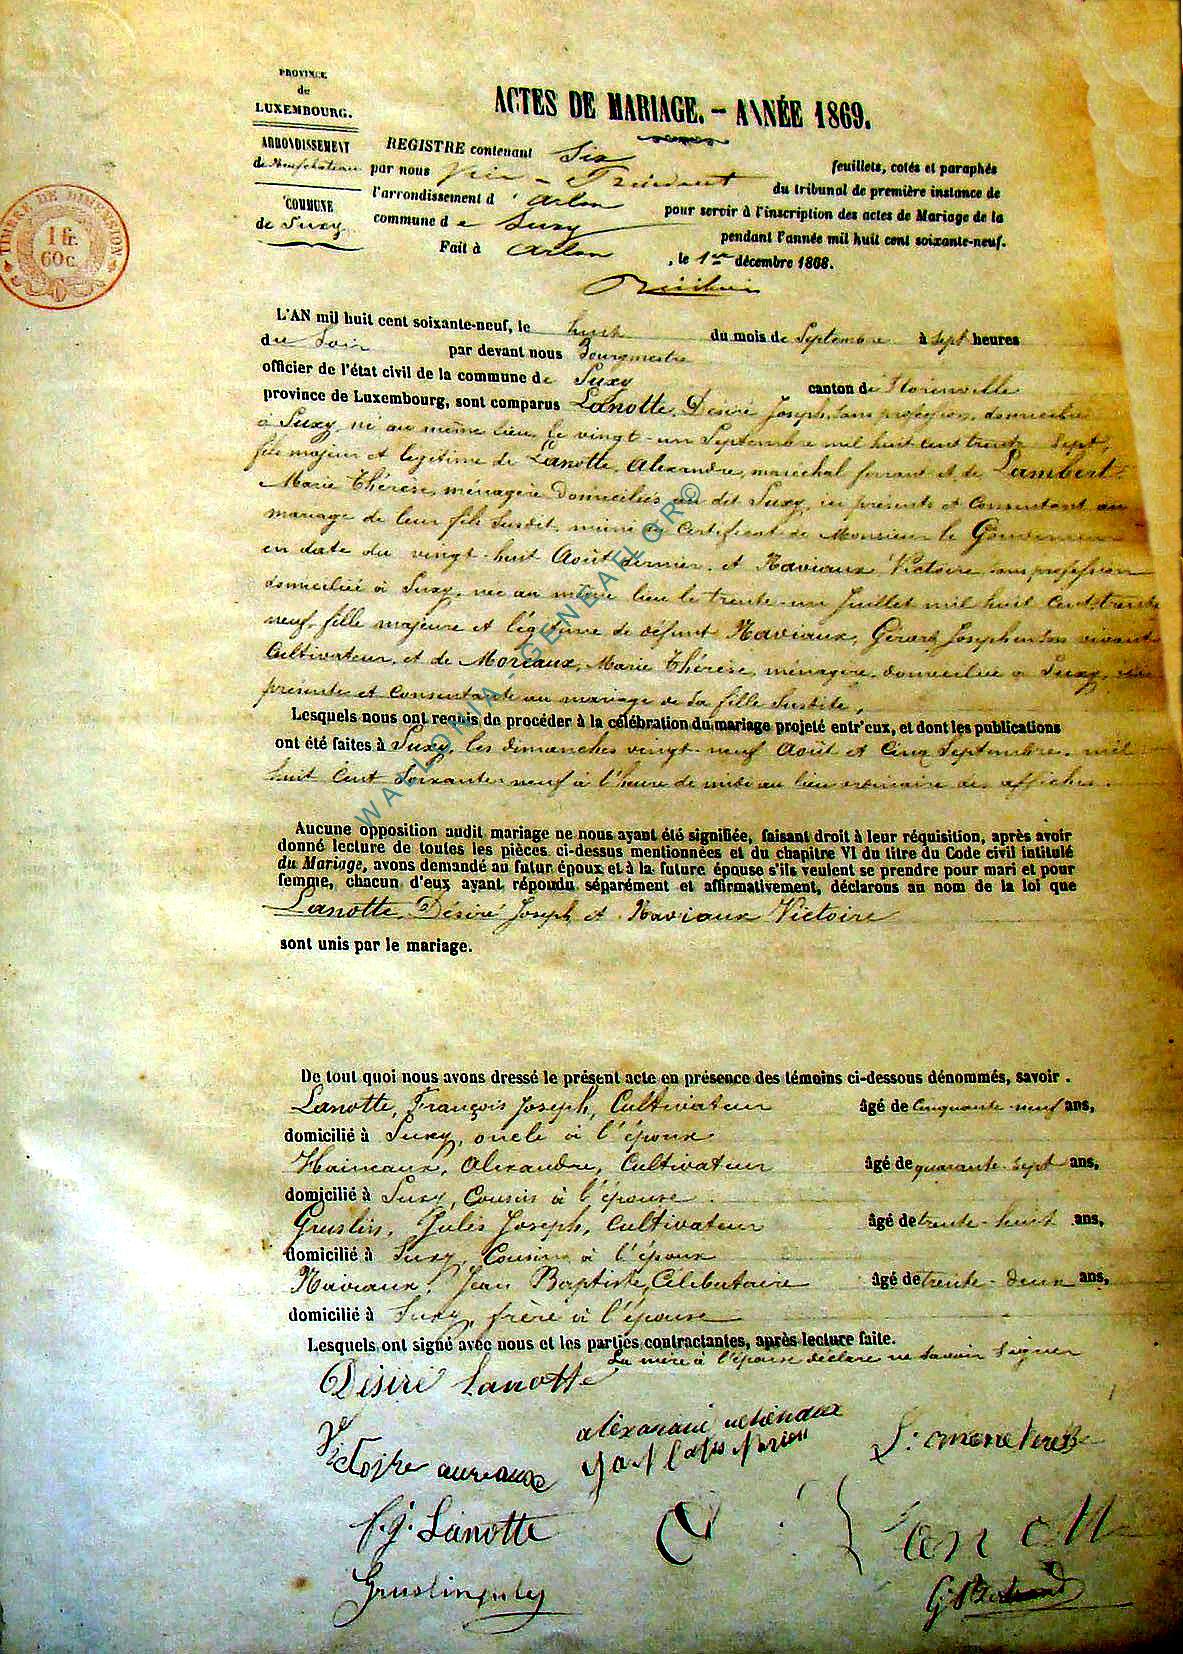 PROVINCE
de
LUXEMBOURG.
ARRONDISSEMENT
de Neufchateau
COMMUNE
de Suxy
TIMBRE DE DIMENSION
1 fr.
60 c.
ACTES DE MARIAGE. — ANNÉE 1869.
REGISTRE contenant Six feuillets, cotés et paraphés
par nous Vice-Président du tribunal de première instance de
l'arrondissement d'Arlon pour servir à l'inscription des actes de Mariage de la
commune de Suxy pendant l'année mil huit cent soixante-neuf.
Fait à Arlon, le 1er décembre 1868.
L'AN mil huit cent soixante-neuf, le huit du mois de Septembre à Sept heures
du Soir par devant nous Bourgmestre
officier de l'état civil de la commune de Suxy canton de Florenville
province de Luxembourg, sont comparus Lanotte, Désiré Joseph, sans profession, domicilié
à Suxy, né au même lieu, le vingt-un Septembre mil huit cent trente sept,
fils majeur et légitime de Lanotte, Alexandre, maréchal ferrant et de Lambert
Marie Thérèse, ménagère domiciliés au dit Suxy, ici présents et consentant au
mariage de leur fils susdit, muni du Certificat de Monsieur le Gouverneur
en date du vingt-huit Août dernier, et Naviaux Victoire, sans profession
domiciliée à Suxy, née au même lieu le trente-un Juillet mil huit cent trente
neuf, fille majeure et légitime de défunt Naviaux, Gérard Joseph en son vivant
Cultivateur, et de Moreaux, Marie Thérèse, ménagère, domiciliée à Suxy, ici
présente et consentante au mariage de sa fille susdite.
Lesquels nous ont requis de procéder à la célébration du mariage projeté entr'eux, et dont les publications
ont été faites à Suxy, les dimanches vingt-neuf Août et Cinq Septembre, mil
huit Cent Soixante neuf à l'heure de midi au lieu ordinaire des affiches.
Aucune opposition audit mariage ne nous ayant été signifiée, faisant droit à leur réquisition, après avoir
donné lecture de toutes les pièces ci-dessus mentionnées et du chapitre VI du titre du Code civil intitulé
du Mariage, avons demandé au futur époux et à la future épouse s'ils veulent se prendre pour mari et pour
femme, chacun d'eux ayant répondu séparément et affirmativement, déclarons au nom de la loi que
Lanotte, Désiré Joseph et Naviaux Victoire
sont unis par le mariage.
De tout quoi nous avons dressé le présent acte en présence des témoins ci-dessous dénommés, savoir.
Lanotte, François Joseph, Cultivateur âgé de Cinquante-neuf ans,
domicilié à Suxy, oncle à l'époux
Haineaux, Alexandre, Cultivateur âgé de quarante-sept ans,
domicilié à Suxy, Cousin à l'épouse.
Gruslin, Jules Joseph, Cultivateur âgé de trente-huit ans,
domicilié à Suxy, Cousin à l'époux
Naviaux, Jean Baptiste, Célibataire âgé de trente-deux ans,
domicilié à Suxy, frère à l'épouse
Lesquels ont signé avec nous et les parties contractantes, après lecture faite.
La mère à l'épouse déclare ne savoir signer
Désiré Lanotte
Victoire
f. j. Lanotte
Lanotte
WALLONIA - GENEAFLOR©